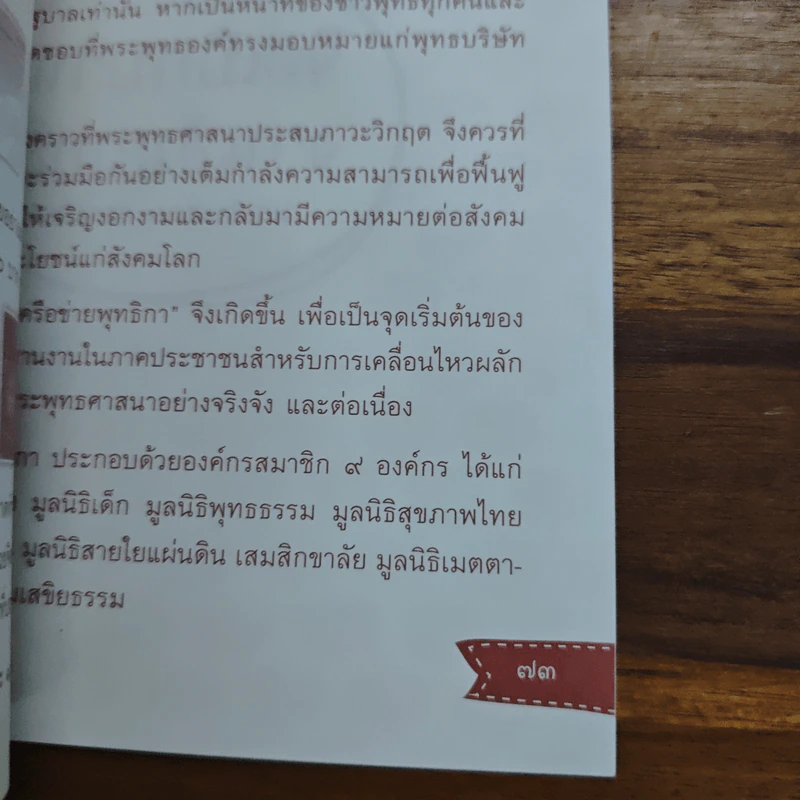 รัฐบาลเท่านั้น หากเป็นหน้าที่ของชาวพุทธทุกคนและ
ชอบที่พระพุทธองค์ทรงมอบหมายแก่พุทธบริษัท
คราวที่พระพุทธศาสนาประสบภาวะวิกฤต จึงควรที่
ร่วมมือกันอย่างเต็มกำลังความสามารถเพื่อฟื้นฟู
ให้เจริญงอกงามและกลับมามีความหมายต่อสังคม
โยชน์แก่สังคมโลก
ครือข่ายพุทธิกา" จึงเกิดขึ้น เพื่อเป็นจุดเริ่มต้นของ
านงานในภาคประชาชนสำหรับการเคลื่อนไหวผลัก
ระพุทธศาสนาอย่างจริงจัง และต่อเนื่อง
กา ประกอบด้วยองค์กรสมาชิก ๙ องค์กร ได้แก่
มูลนิธิเด็ก มูลนิธิพุทธธรรม มูลนิธิสุขภาพไทย
มูลนิธิสายใยแผ่นดิน เสมสิกขาลัย มูลนิธิเมตตา-
เสขิยธรรม
๗๓